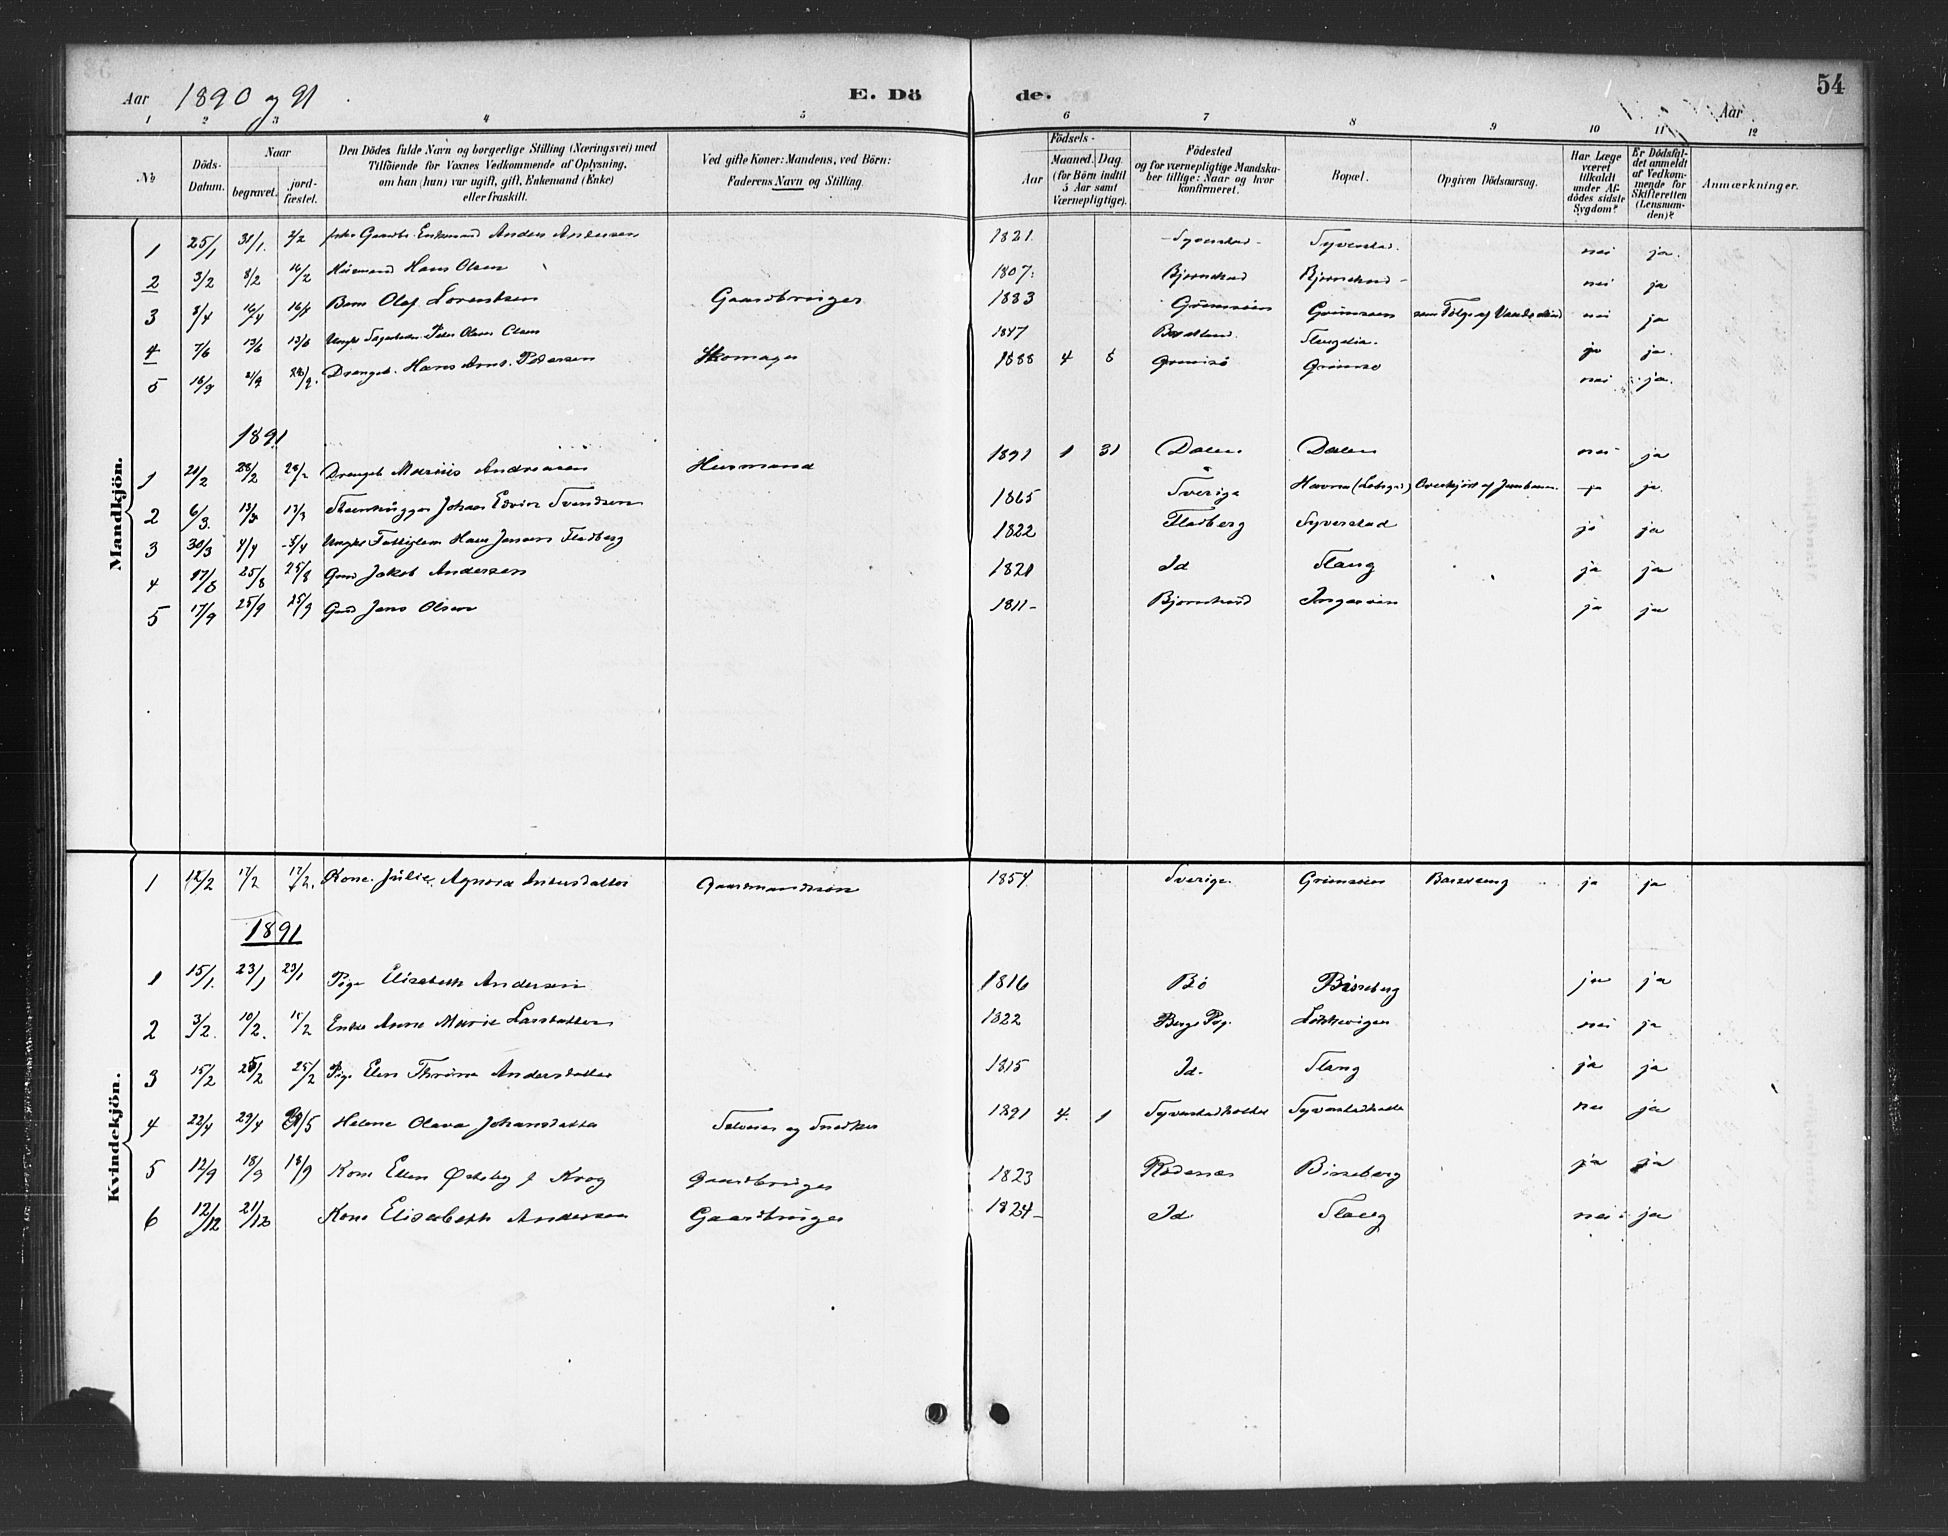 Aar 1890 og 91
E. Döde.
Aar
54
1 2 3 4 5 6 7 8 9 10 11 12
No
Döds-Datum.
Naar
begravet.
jordfæstet.
Den Dödes fulde Navn og borgerlige Stilling (Næringsvei) med
Tilföiende for Voxnes Vedkommende af Oplysning,
om han (hun) var ugift, gift, Enkemand (Enke)
eller fraskilt.
Ved gifte Koner: Mandens, ved Börn:
Faderens Navn og Stilling.
Födsels-
Aar
Maaned. Dag.
(for Börn indtil
5 Aar samt
Værnepligtige).
Födested
og for værnepligtige Mandskaber tillige: Naar og hvor
konfirmeret.
Bopæl.
Opgiven Dödsaarsag.
Har Læge
været
tilkaldt
under Afdödes sidste
Sygdom?
Er Dödsfaldet anmeldt
af Vedkommende for
Skifteretten
(Lensmanden)?
Anmærkninger.
Mandkjön.
1 25/1 31/1. 2/2 Gaardbr. Enkemand Anders Andersen 1821. Syverstad Syverstad. nei ja.
2 3/2 8/2 16/2 Husmand Hans Olsen 1807. Bjørnstad Bjørnstad nei ja
3 8/4 16/4 16/4 Barn Olaf Lorentsen Gaardbruger 1883 Grimsøen Grimsøen som Følge af nei ja
4 7/6 13/6 13/6 Ungkl. Peder Olaves Olsen 1847 ja ja.
5 18/9 21/9 Drengeb. Hans Arns. Pedersen Skomager 1888 4 8 Grimsø Grimsø nei ja.
1891
1 21/2 28/2 28/2 Drengeb Marius Andreasen Husmand 1891 1 31 Dalen Dalen nei ja
2 6/3. 13/3 13/3 Steenhugger Johan Edvin Svendsen 1865 Sverige Overkjørt af Jernbanen ja ja.
3 30/3 4/4 5/4 Ungkl Fattiglem Hans Jensen Fladberg 1822 Fladberg Syverstad ja ja
4 17/8 25/8 25/8 Gmd Jakob Andersen 1821 Id Stang ja ja
5 17/9 25/9 25/9 Gmd Jens Olsen 1811 Bjørnstad ja ja
Kvindekjön.
1 12/2 17/2 17/2. Kone. Julie. Agnora Andersdatter Gaardmandssøn 1854 Sverige. Grimsøen Barselseng ja ja
1891
1 15/1. 23/1 23/1 Pige Elisabeth Andersen 1816 Bö Bisseberg ja ja
2 3/2. 10/2. 11/2 Enke Anne Marie Larsdatter 1822 Berg Pgj. Lökkevigen nei ja
3 15/2 25/2 25/2 Pige Elen Thrine Andersdatter 1815 Id. Stang ja ja
4 22/4 29/4 Helene Olava Johansdatter Selveier og Snedker 1891 4. 1 Syverstadholtet Syverstadholtet nei ja
5 12/9 18/9 18/9 Kone Ellen Østeby f Krog Gaardbruger 1823 Rødenæs Bisseberg ja ja
6 12/12 21/12 Kone Elisabeth Andersen Gaardbruger 1824 Id Stang nei ja